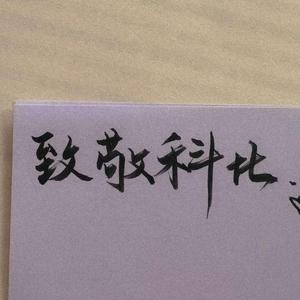 致敬科比